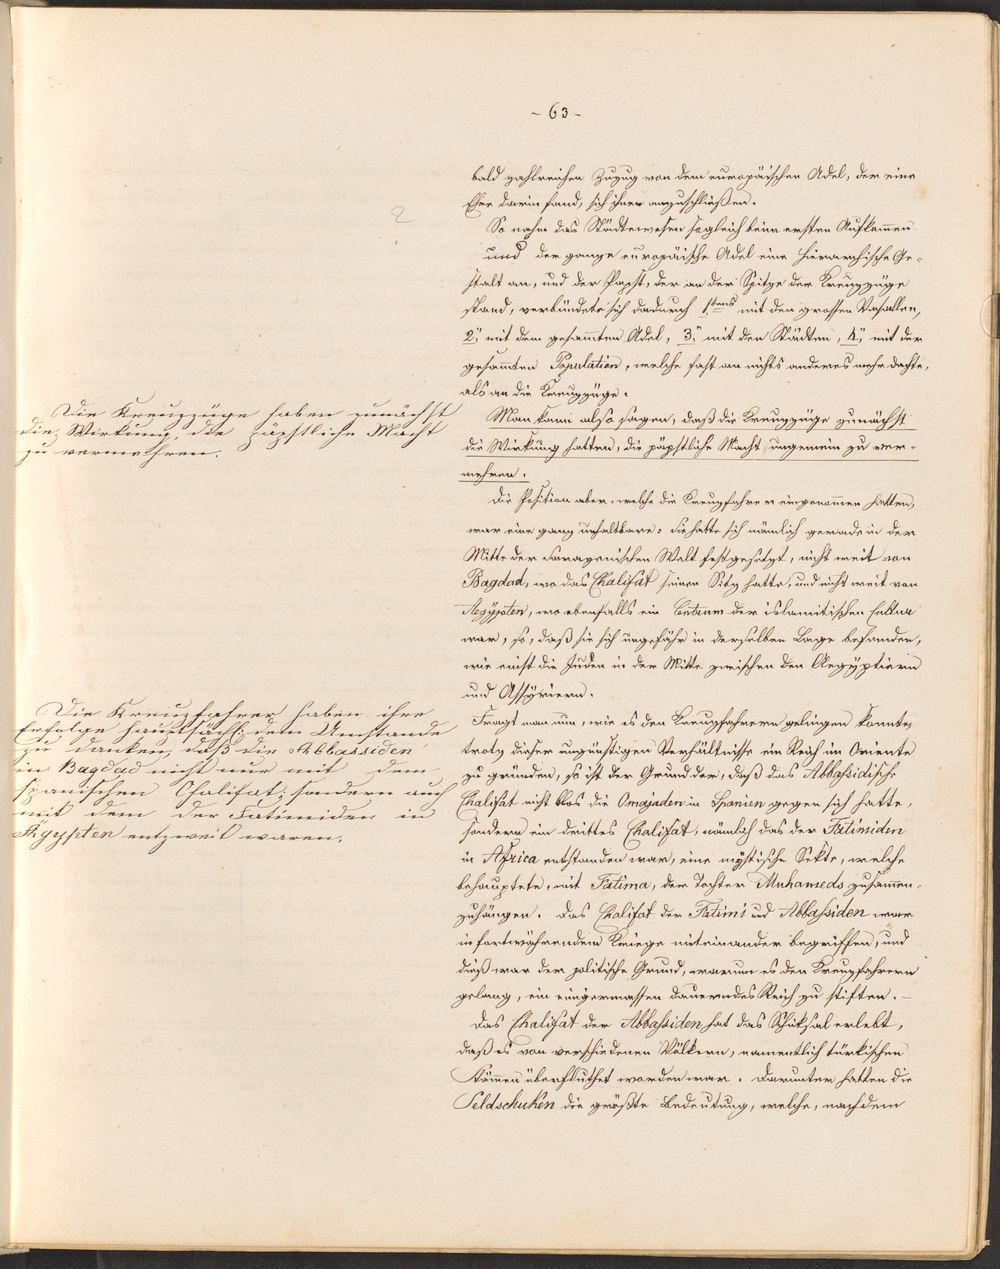 - 63 -
bald zahlreichen Zuzug von dem europäischen Adel, der eine
Ehre darin fand, sich ihnen anzuschließen.
So nahm das Städtewesen sogleich beim ersten Aufkommen
und der ganze europäische Adel eine hierarchische Ge-
stalt an, und der Papst, der an der Spitze der Kreuzzüge
stand, verbündete sich dadurch 1tens mit den grossen Vasallen,
2, mit dem gesammten Adel, 3, mit den Städten, 4, mit der
gesammten Population, welche fast an nichts anderes mehr dachte,
als an die Kreuzzüge.
Die Kreuzzüge haben zunächst
die Wirkung, die päpstliche Macht
zu vermehren.
Man kann also sagen, daß die Kreuzzüge zunächst
die Wirkung hatten, die päpstliche Macht ungemein zu ver-
mehren.
Die Position aber, welche die Kreuzfahrer eingenommen hatten,
war eine ganz unhaltbare: sie hatte sich nämlich gerade in der
Mitte der sarazenischen Welt festgesetzt, nicht weit von
Bagdad, wo das Chalifat seinen Sitz hatte, und nicht weit von
Aegypten, wo ebenfalls ein Centrum der islamitischen Cultur
war, so, daß sie sich ungefähr in derselben Lage befanden,
wie einst die Juden in der Mitte zwischen den Aegyptiern
und Assyriern.
Die Kreuzfahrer haben ihre
Erfolge hauptsächl: dem Umstande
zu danken, daß die Abbassiden
in Bagdad nicht nur mit dem
spanischen Chalifat, sondern auch
mit dem der Fatimiden in
Ägypten entzweit waren.
Fragt man nun, wie es den Kreuzfahrern gelingen konnte,
trotz dieser ungünstigen Verhältnisse ein Reich im Oriente
zu gründen, so ist der Grund der, daß das Abbassidische
Chalifat nicht blos die Omajaden in Spanien gegen sich hatte,
sondern ein drittes Chalifat, nämlich das der Fatimiden
in Africa entstanden war, eine mystische Sekte, welche
behauptete, mit Fatima, der Tochter Muhameds zusammen-
zuhängen. Das Chalifat der Fatimi und Abbassiden war
in fortwährendem Kriege miteinander begriffen, und
dieß war der politische Grund, warum es den Kreuzfahrern
gelang, ein einigermassen dauerndes Reich zu stiften. -
Das Chalifat der Abbassiden hat das Schicksal erlebt,
daß es von verschiedenen Völkern, namentlich türkischen
Stämmen überfluthet worden war. Darunter hatten die
Seldschuken die größte Bedeutung, welche, nachdem